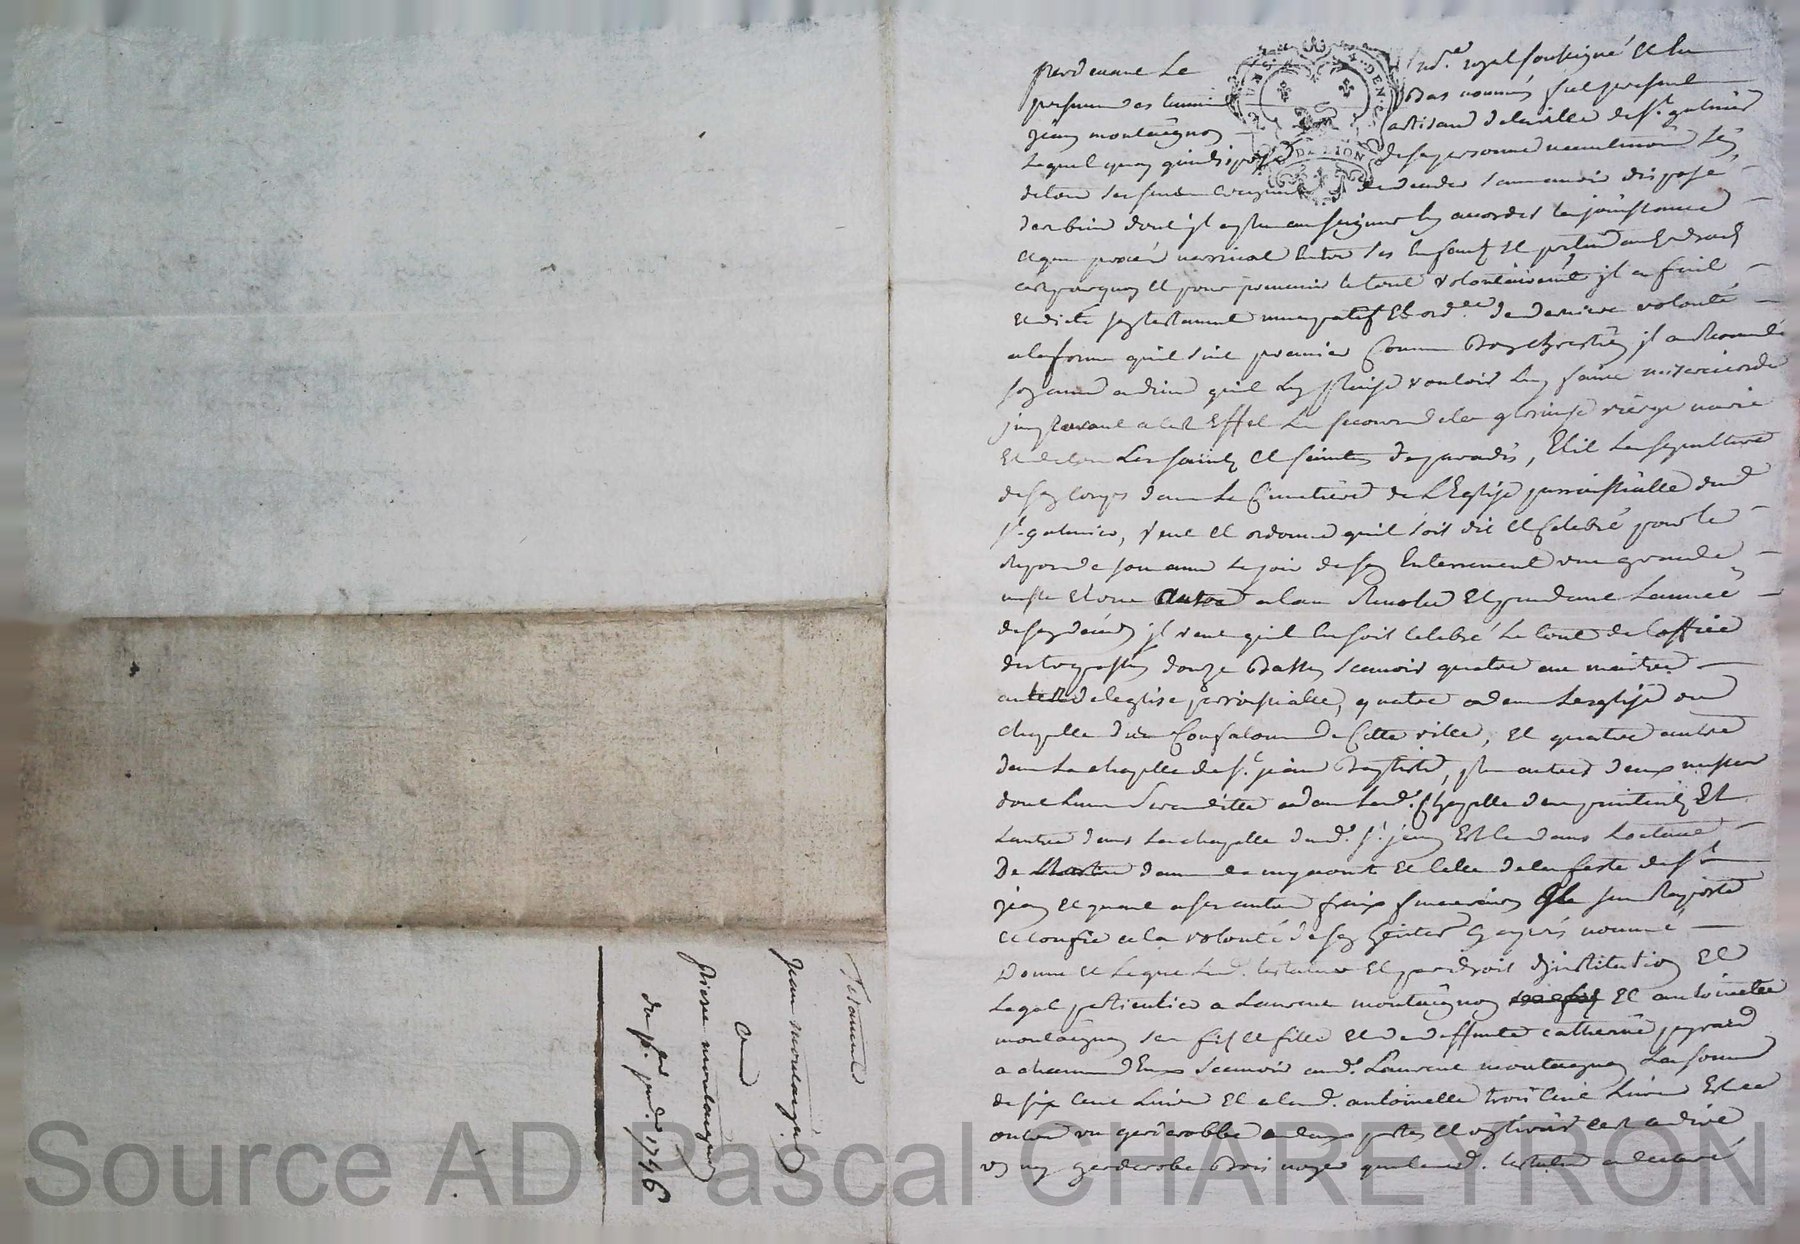 Testament
Jean montaignon
a
pierre montaignon
du p.er jan. 1746
pardevant Le no.re royal soussigné et les
presence des temoins bas nommés fut present
jean montaignon artisan de la ville de st. galmier
Lequel quoy qu'indisposé de sa personne neanmoins
de tous ses sens craignant de deceder sans avoir disposé
des biens dont il a plu au seigneur luy accorder la jouissance
et que procès narrivat entre ses enfans et pretendans droit
cest pourquoy et pour prevenir le tout volontairement il a fait
et dicté son testament nuncupatif et ord.ce de derniere volonté
a la forme quil suit premier Comme bon chrestien il a recomandé
son ame a dieu quil luy plaise vouloir luy faire misericorde
implorant a cet effet le secours de la glorieuse vierge marie
et de tous Les saints et saintes de paradis, Elit la sepulture
de son corps dans le Cimetiere de L'Eglise parroissialle dud.
st. galmier, veut et ordonne quil soit dit et Celebré pour le
repos de son ame le jour de son Enterrement une grande
messe et une autre a la et pendant L'année
de son deces il veut quil en soit celebré le tout de l'office
des trepassés douze basses scavoir quatre au maitre
autel de leglise parroissialle, quatre dans Leglise ou
chapelle du Confalon de Cette ville, et quatre autre
dans la chapelle de st. jean baptiste, plus autres deux messes
dont lune sera ditte dans lad. Chapelle des penitens Et
Lautre dans La chapelle dud. st. jean Et ce dans L'octave
De et celle de la feste de st
jean et quant a ses autres fraix funeraires Il sen rapporte
et confie a la volonté de son heritier cy apres nommé
Donne et Legue Led. testateur Et par droit d'institution Et
Legat particulier a Laurent montaignon Et antoinette
montaignon ses fils et fille et de deffunte catherine peyrard
a chacun d'Eux scavoir aud. Laurent montaignon La somme
de six cent Livres et a lad. antoinette trois cent Livres Et
outre un garderobbe a deux portes et
un garderobe bois noyer que led. testateur a declaré
Source AD Pascal CHAREYRON